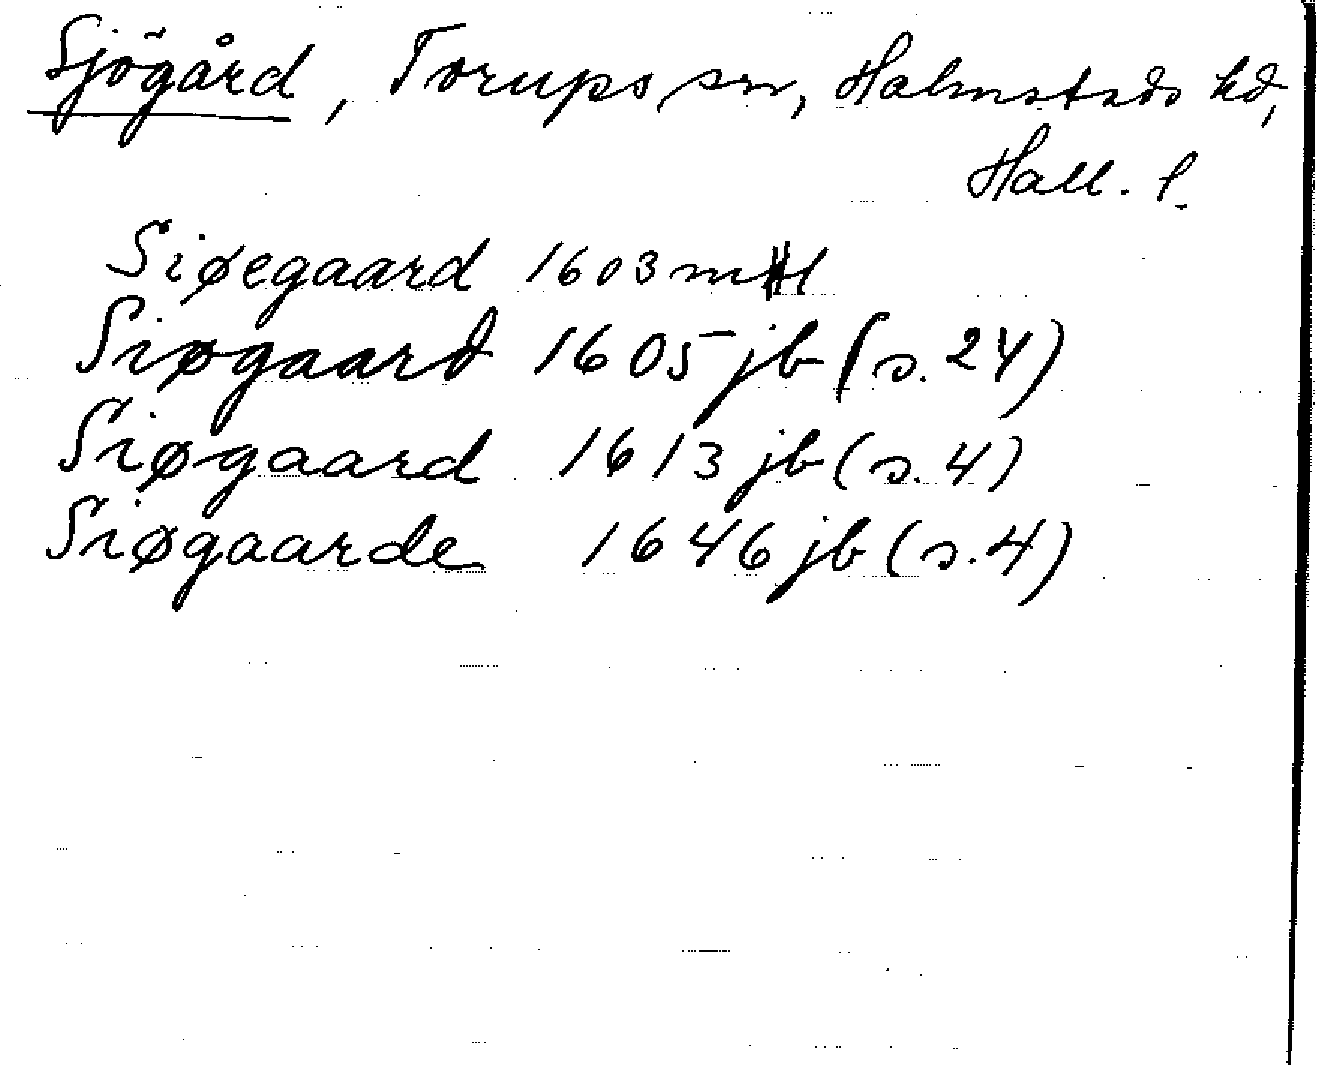 Sjögård, Torups sn, Halmstads hd,
Hall. l.
Siøegaard 1603 mtl
Siøgaard 1605 jb (s. 24)
Siøgaard 1613 jb (s. 4)
Siøgaarde 1646 jb (s. 4)